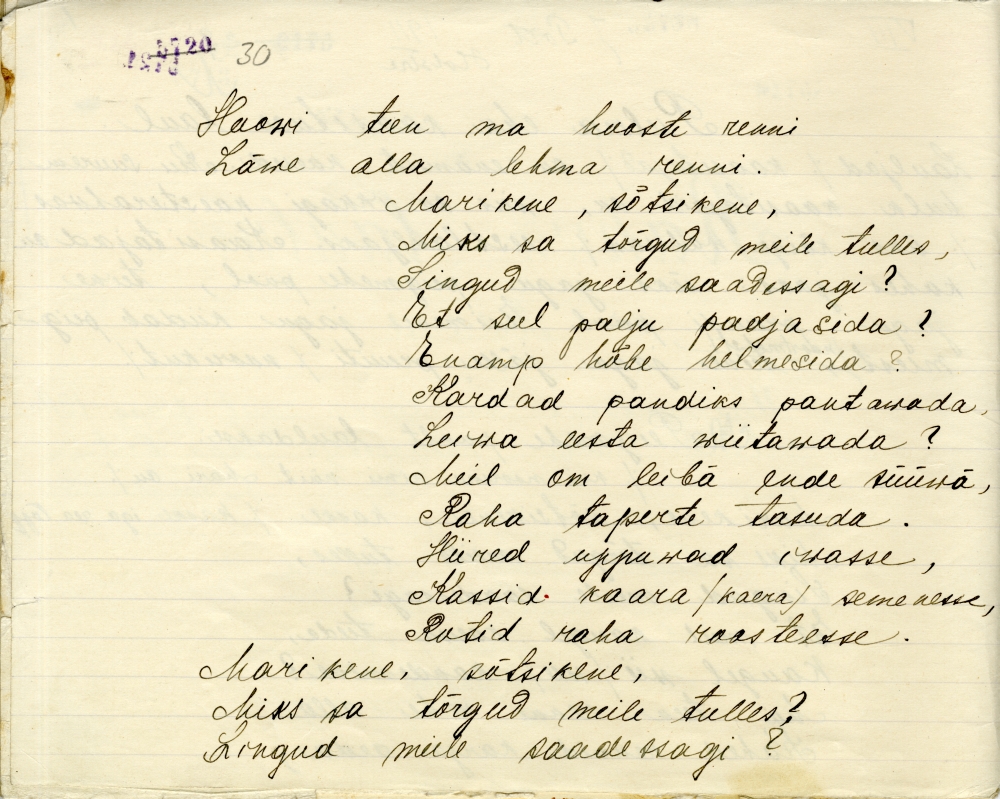 5720
30
Hoowi teen ma hooste renni
Läwe alla lehma renni.
Marikene, sõtsikene,
Miks sa tõrgud meile tulles,
Lingud meile saadessagi?
Et seel palju padjasida?
Enamp hõbe helmesida?
Kardad pandiks pantawada,
Leiwa eesta wiitawada?
Meil om leibä ende süüwä,
Raha taperte tasuda.
Hiired uppuwad iwasse,
Kassid kaara /kaera/ semenesse,
Rotid raha roosteesse.
Marikene, sõtsikene,
Miks sa tõrgud meile tulles?
Lingud meile saadessagi?